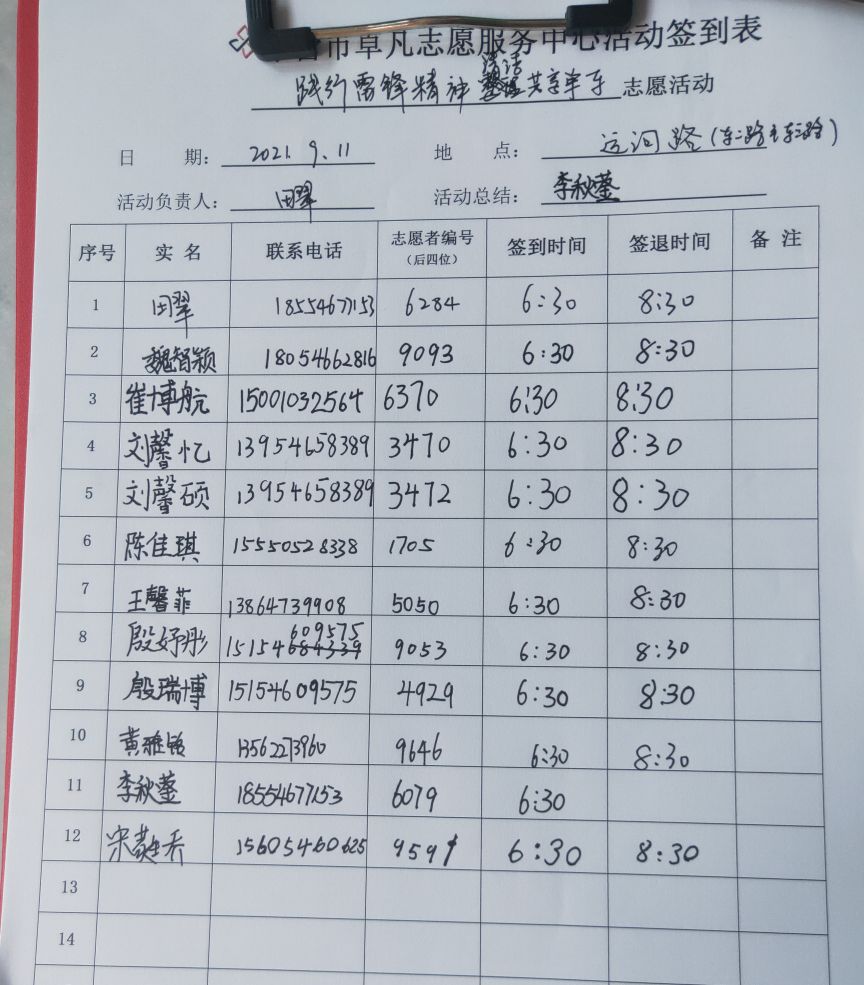 市草凡志愿服务中心活动签到表
践行雷锋精神 清洁共享单车 志愿活动
日 期: 2021.9.11 地 点: 运河路(东二路至东三路)
活动负责人: 田翠 活动总结: 李秋蓥
序号 实 名 联系电话 志愿者编号(后四位) 签到时间 签退时间 备 注
1 田翠 18554677153 6284 6:30 8:30
2 魏智颖 18054662816 9093 6:30 8:30
3 崔博航 15001032564 6370 6:30 8:30
4 刘馨忆 13954658389 3470 6:30 8:30
5 刘馨硕 13954658389 3472 6:30 8:30
6 陈佳琪 15550528338 1705 6:30 8:30
7 王馨菲 13864739908 5050 6:30 8:30
8 殷妤彤 15154609575 9053 6:30 8:30
9 殷瑞博 15154609575 4929 6:30 8:30
10 黄雅 13562273960 9646 6:30 8:30
11 李秋蓥 18554677153 6079 6:30
12 宋 15605460625 959 6:30 8:30
13
14